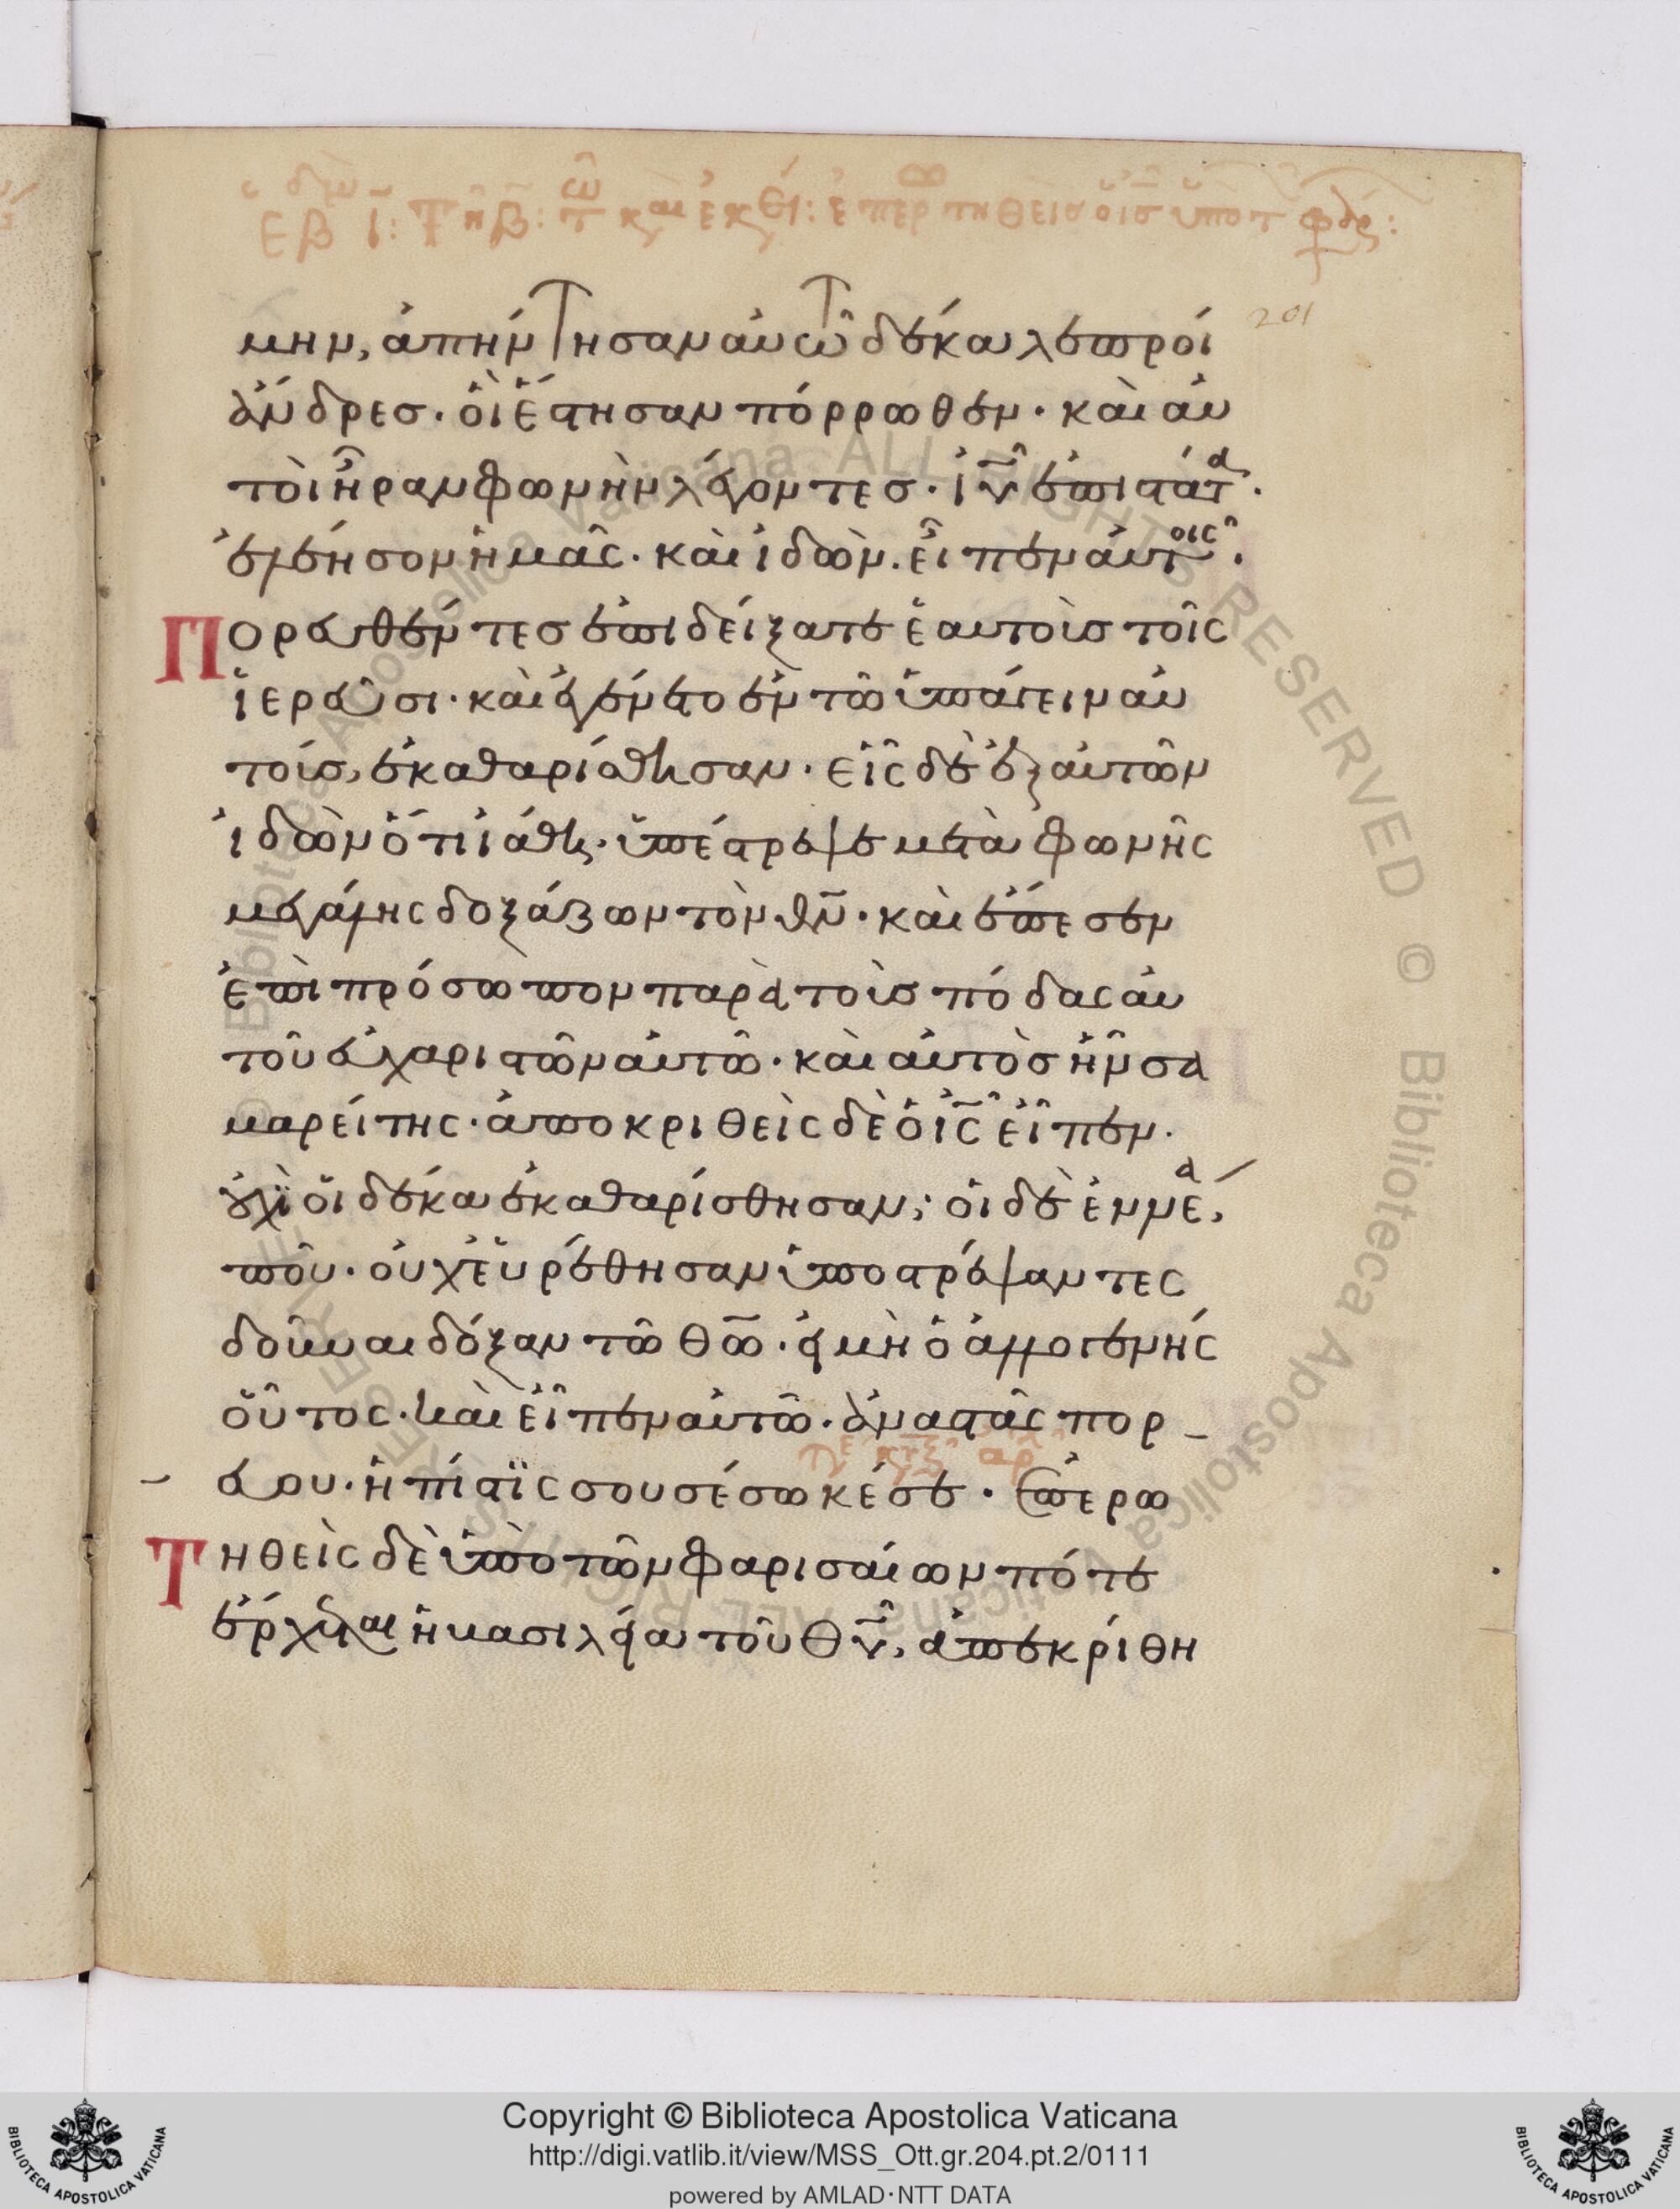 201
μην, ἀπήντησαν αὐτῶ δέκα λεπροί
ἄνδρες· οἳ ἔστησαν πόρρωθεν· καὶ αὐ
τοὶ ἦραν φωνὴν λέγοντες· ἰῦ ἐπιστάτα·
ἐλέησον ἡμᾶς· καὶ ἰδὼν. εἶπεν αὐτοῖς·
Πορευθέντες ἐπιδείξατε ἑαυτοὺς τοῖς
ἱερεῦσι· καὶ ἐγένετο ἐν τῶ ὑπάγειν αὐ
τούς, ἐκαθαρίσθησαν· εἷς δὲ ἐξ αὐτῶν
ἰδὼν ὅτι ἰάθη, ὑπέστρεψε μετὰ φωνῆς
μεγάλης δοξάζων τὸν θν̄· καὶ ἔπεσεν
ἐπὶ πρόσωπον παρὰ τοὺς πόδας αὐ
τοῦ εὐχαριστῶν αὐτῶ· καὶ αὐτὸς ἦν σα
μαρείτης· ἀποκριθεὶς δὲ ὁ ις̄ εἶπεν·
οὐχὶ οἱ δέκα ἐκαθαρίσθησαν; οἱ δὲ ἐννέα,
ποῦ· οὐχ εὑρέθησαν ὑποστρέψαντες
δοῦναι δόξαν τῶ θω̄· εἰ μὴ ὁ ἀλλογενής
οὗτος· καὶ εἶπεν αὐτῶ· ἀναστὰς πορ
εύου· ἡ πίστις σου σέσωκέ σε· Ἐπερω
Τηθεὶς δὲ ὑπὸ τῶν φαρισαίων πότε
ἔρχεται ἡ βασιλεία τοῦ θῡ, ἀπεκρίθη
© Biblioteca Apostolica Vaticana ALL RIGHTS RESERVED © Biblioteca Apostolica Vaticana ALL RIGHTS RESERVED
Copyright © Biblioteca Apostolica Vaticana
http://digi.vatlib.it/view/MSS_Ott.gr.204.pt.2/0111
powered by AMLAD·NTT DATA
BIBLIOTECA APOSTOLICA VATICANA
BIBLIOTECA APOSTOLICA VATICANA